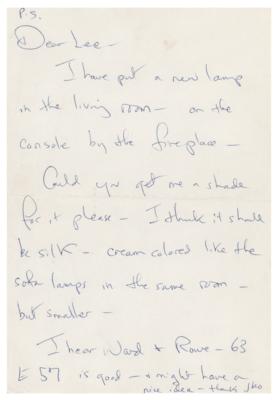 P.S.
Dear Lee —
I have put a new lamp
in the living room — on the
console by the fireplace —
Could you get me a shade
for it please — I think it should
be silk — cream colored like the
sofa lamps in the same room —
but smaller —
I hear Ward & Rowe — 63
E 57 is good — & might have a
nice idea — thank jko